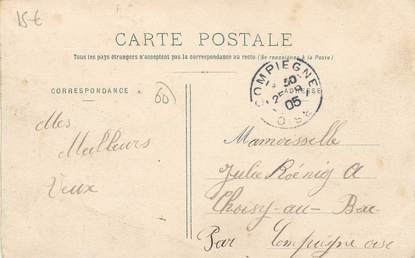 15 €
CARTE POSTALE
Tous les pays étrangers n'acceptent pas la correspondance au recto (Se renseigner à la Poste)
CORRESPONDANCE
60
ADRESSE
COMPIEGNE
50
25
05
OISE
Mes
Meilleurs
Veux
Mamoisselle
Julie Roénig A
Choisy-au-Bac
Par Compiegne oise